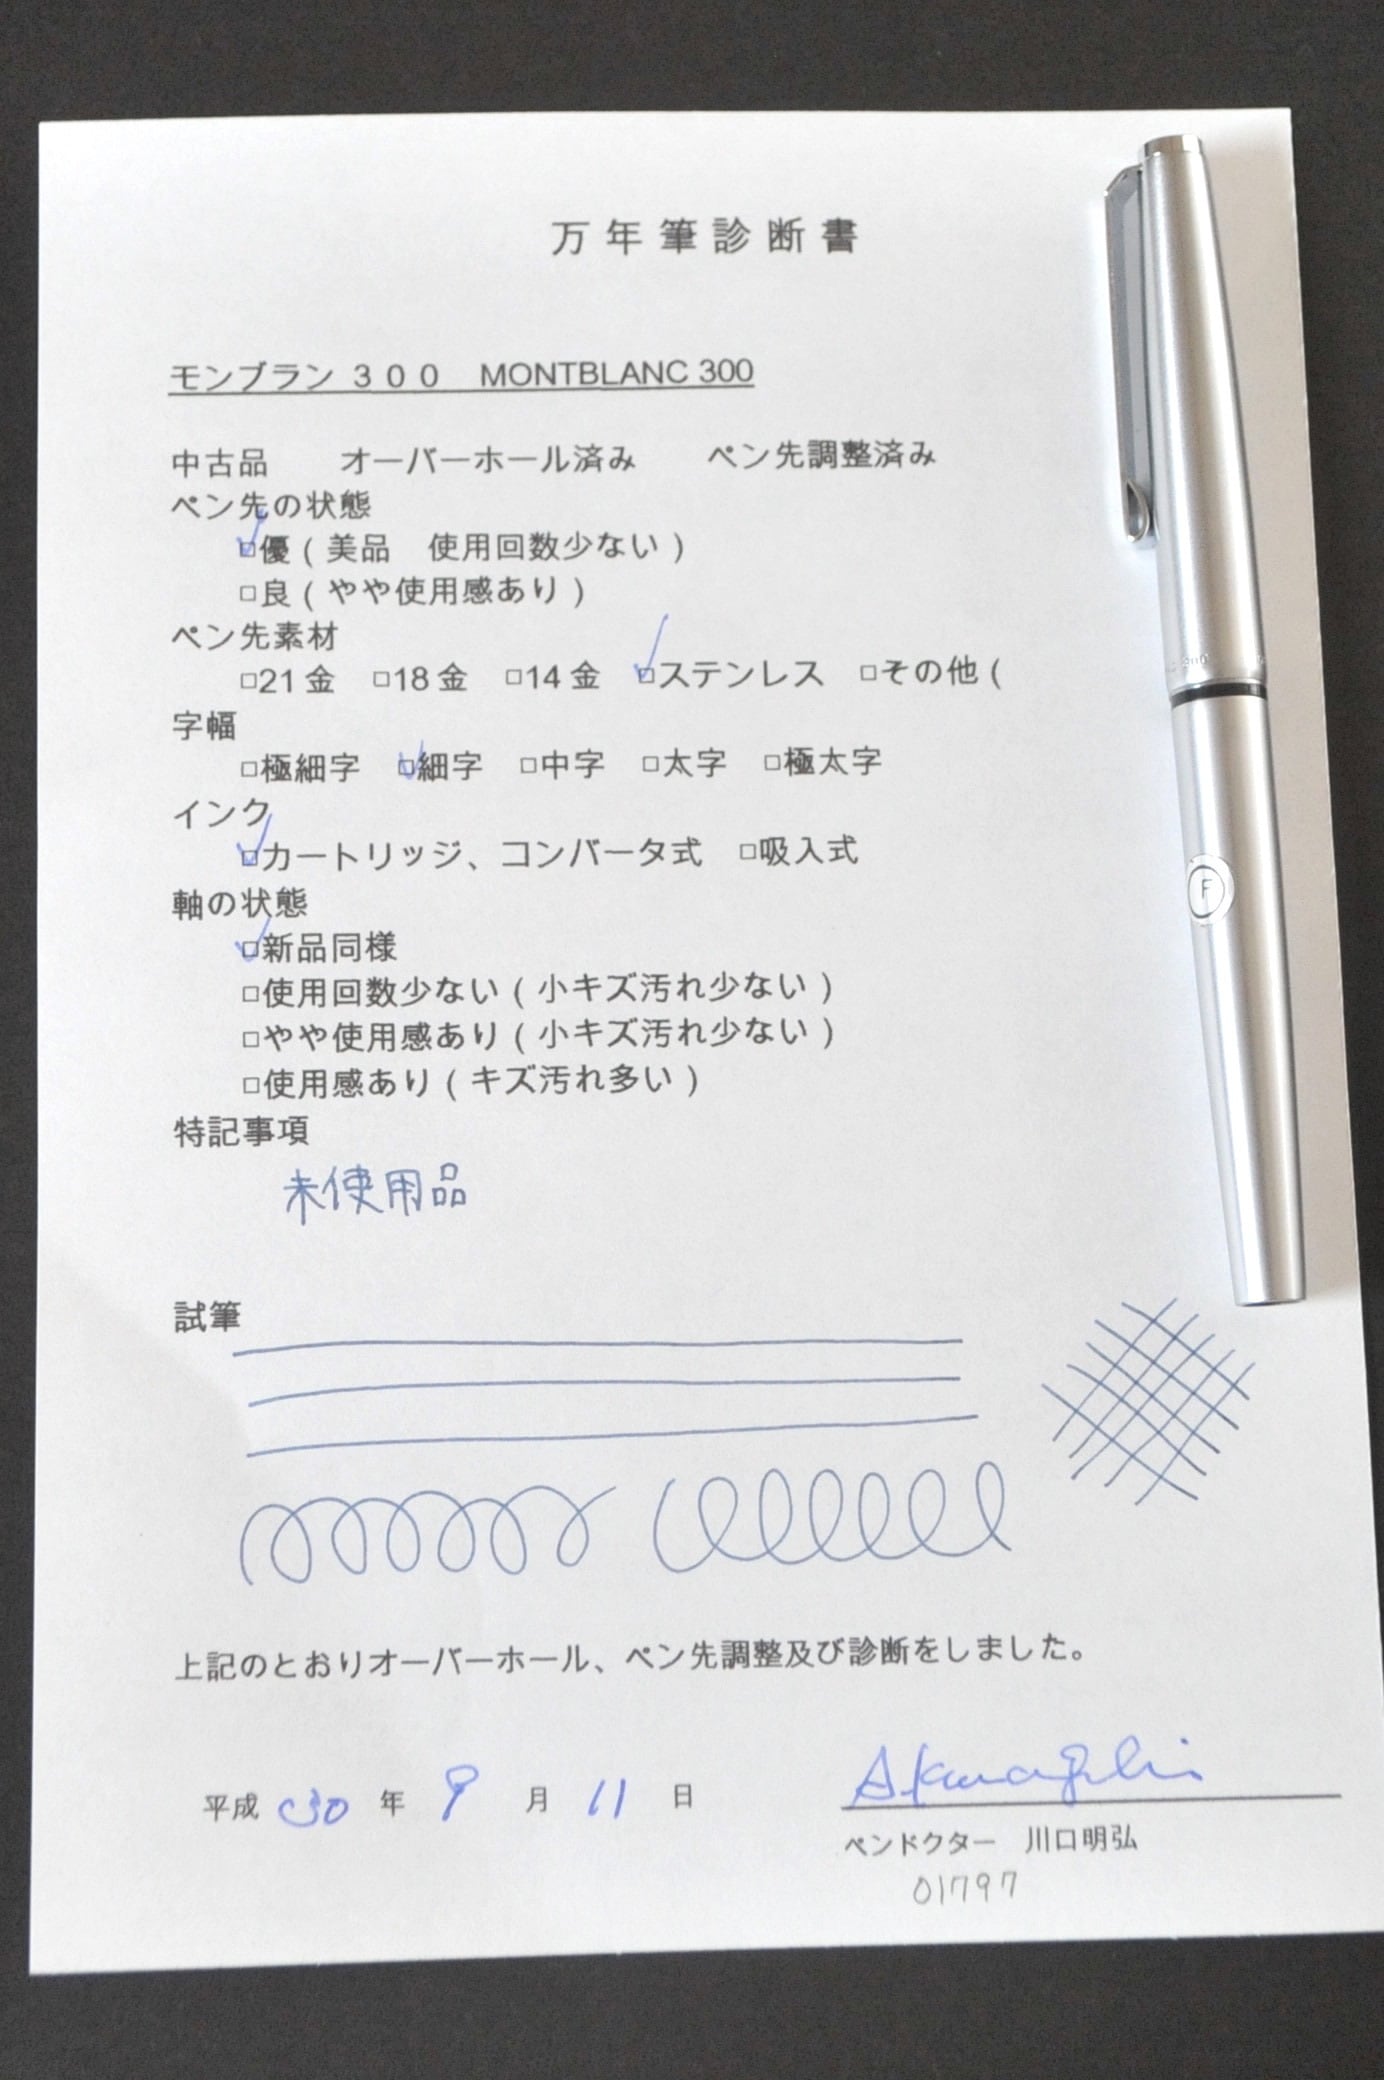 万年筆診断書
モンブラン ３００　MONTBLANC 300
中古品　　オーバーホール済み　　ペン先調整済み
ペン先の状態
□優（美品　使用回数少ない）
□良（やや使用感あり）
ペン先素材
□21金　□18金　□14金　□ステンレス　□その他（
字幅
□極細字　□細字　□中字　□太字　□極太字
インク
□カートリッジ、コンバータ式　□吸入式
軸の状態
□新品同様
□使用回数少ない（小キズ汚れ少ない）
□やや使用感あり（小キズ汚れ少ない）
□使用感あり（キズ汚れ多い）
特記事項
未使用品
試筆
上記のとおりオーバーホール、ペン先調整及び診断をしました。
平成 30 年 9 月 11 日
ペンドクター　川口明弘
01797
F